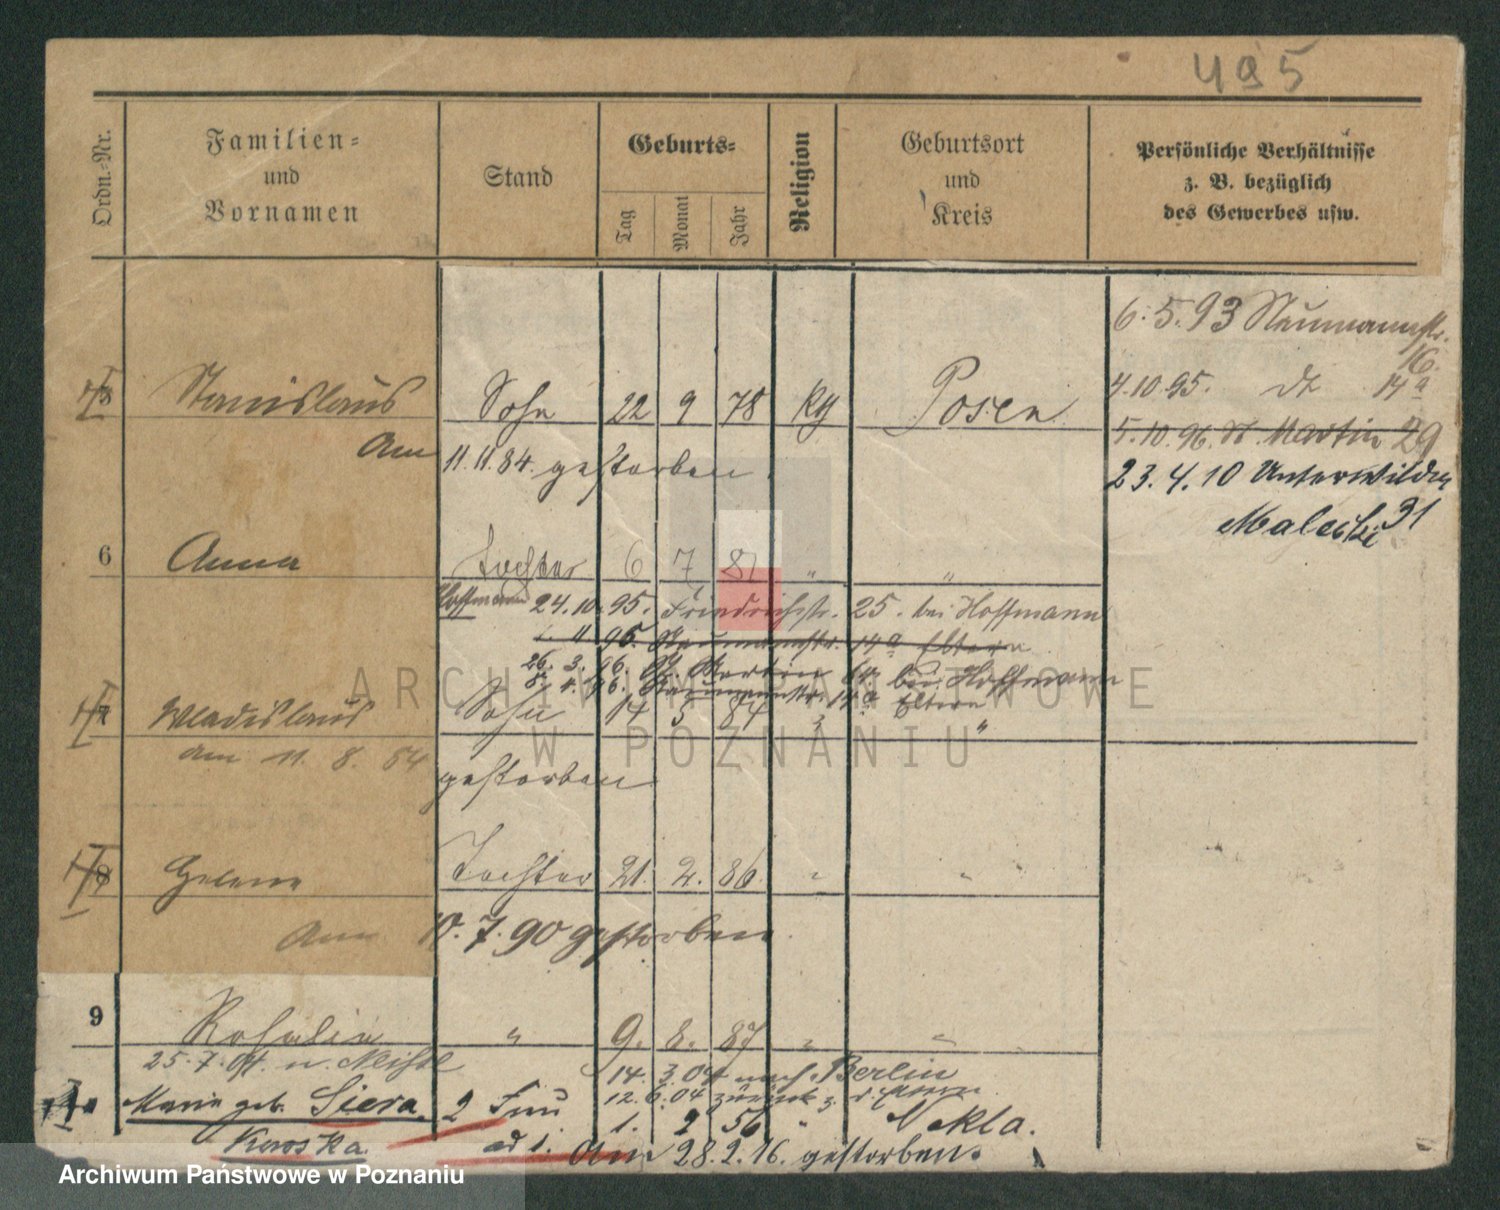 495
Ordn.-Nr.
Familien-
und
Vornamen
Stand
Geburts-
Tag
Monat
Jahr
Religion
Geburtsort
und
Kreis
Persönliche Verhältnisse
z. B. bezüglich
des Gewerbes usw.
6.5.93 Neumannstr.
16.
4.10.95. dt 14a
5.10.96. St. Martin 29
23.4.10 Unterwilda
31
Stanislaus Sohn 22 9 78 kg Posen
Am 11.11.84. gestorben
6 Anna Tochter 6 7 81 " "
Hoffmann 24.10.95. Friedrichstr. 25. bei Hoffmann
1. 11 95. Neumannstr. 14a Eltern
26. 3. 96. St. Martin 64. bei Hoffmann
4. 96. Neumannstr. 14a Eltern
7 Wladislaus Sohn 14 5 84 " "
am 11. 8. 84 gestorben
8 Helene Tochter 21. 2. 86 " "
Am 10.7.90 gestorben
9 Rosalie " 9. 8. 87 " "
25.7.04. n.
14. 3.04 nach Berlin
12.6.04 zurück
Marie geb. Siera. 2 Frau 1. 2 56 " Nekla.
ad 1. Am 28.2.16. gestorben.
ARCHIWUM PAŃSTWOWE
W POZNANIU
Archiwum Państwowe w Poznaniu